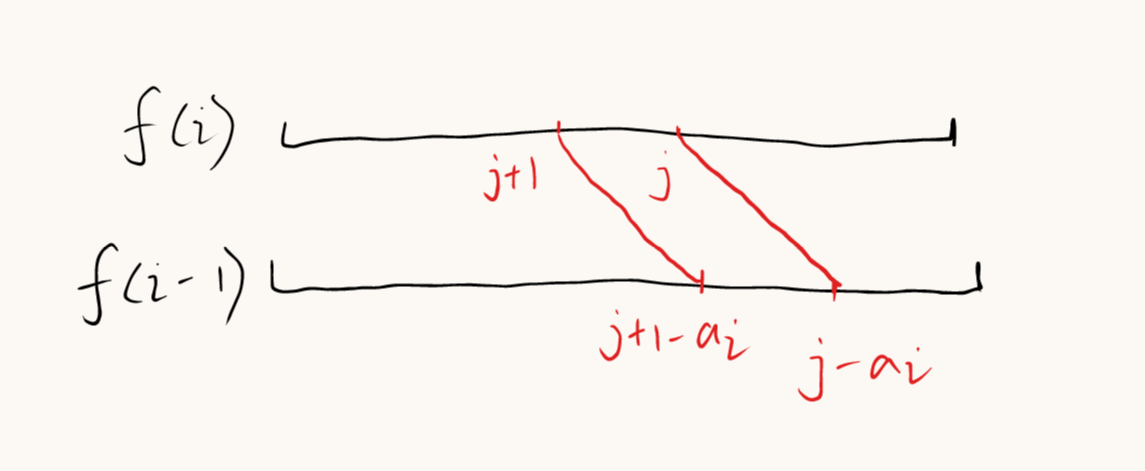 f(i)
j+1 j
f(i-1)
j+1-ai
j-ai